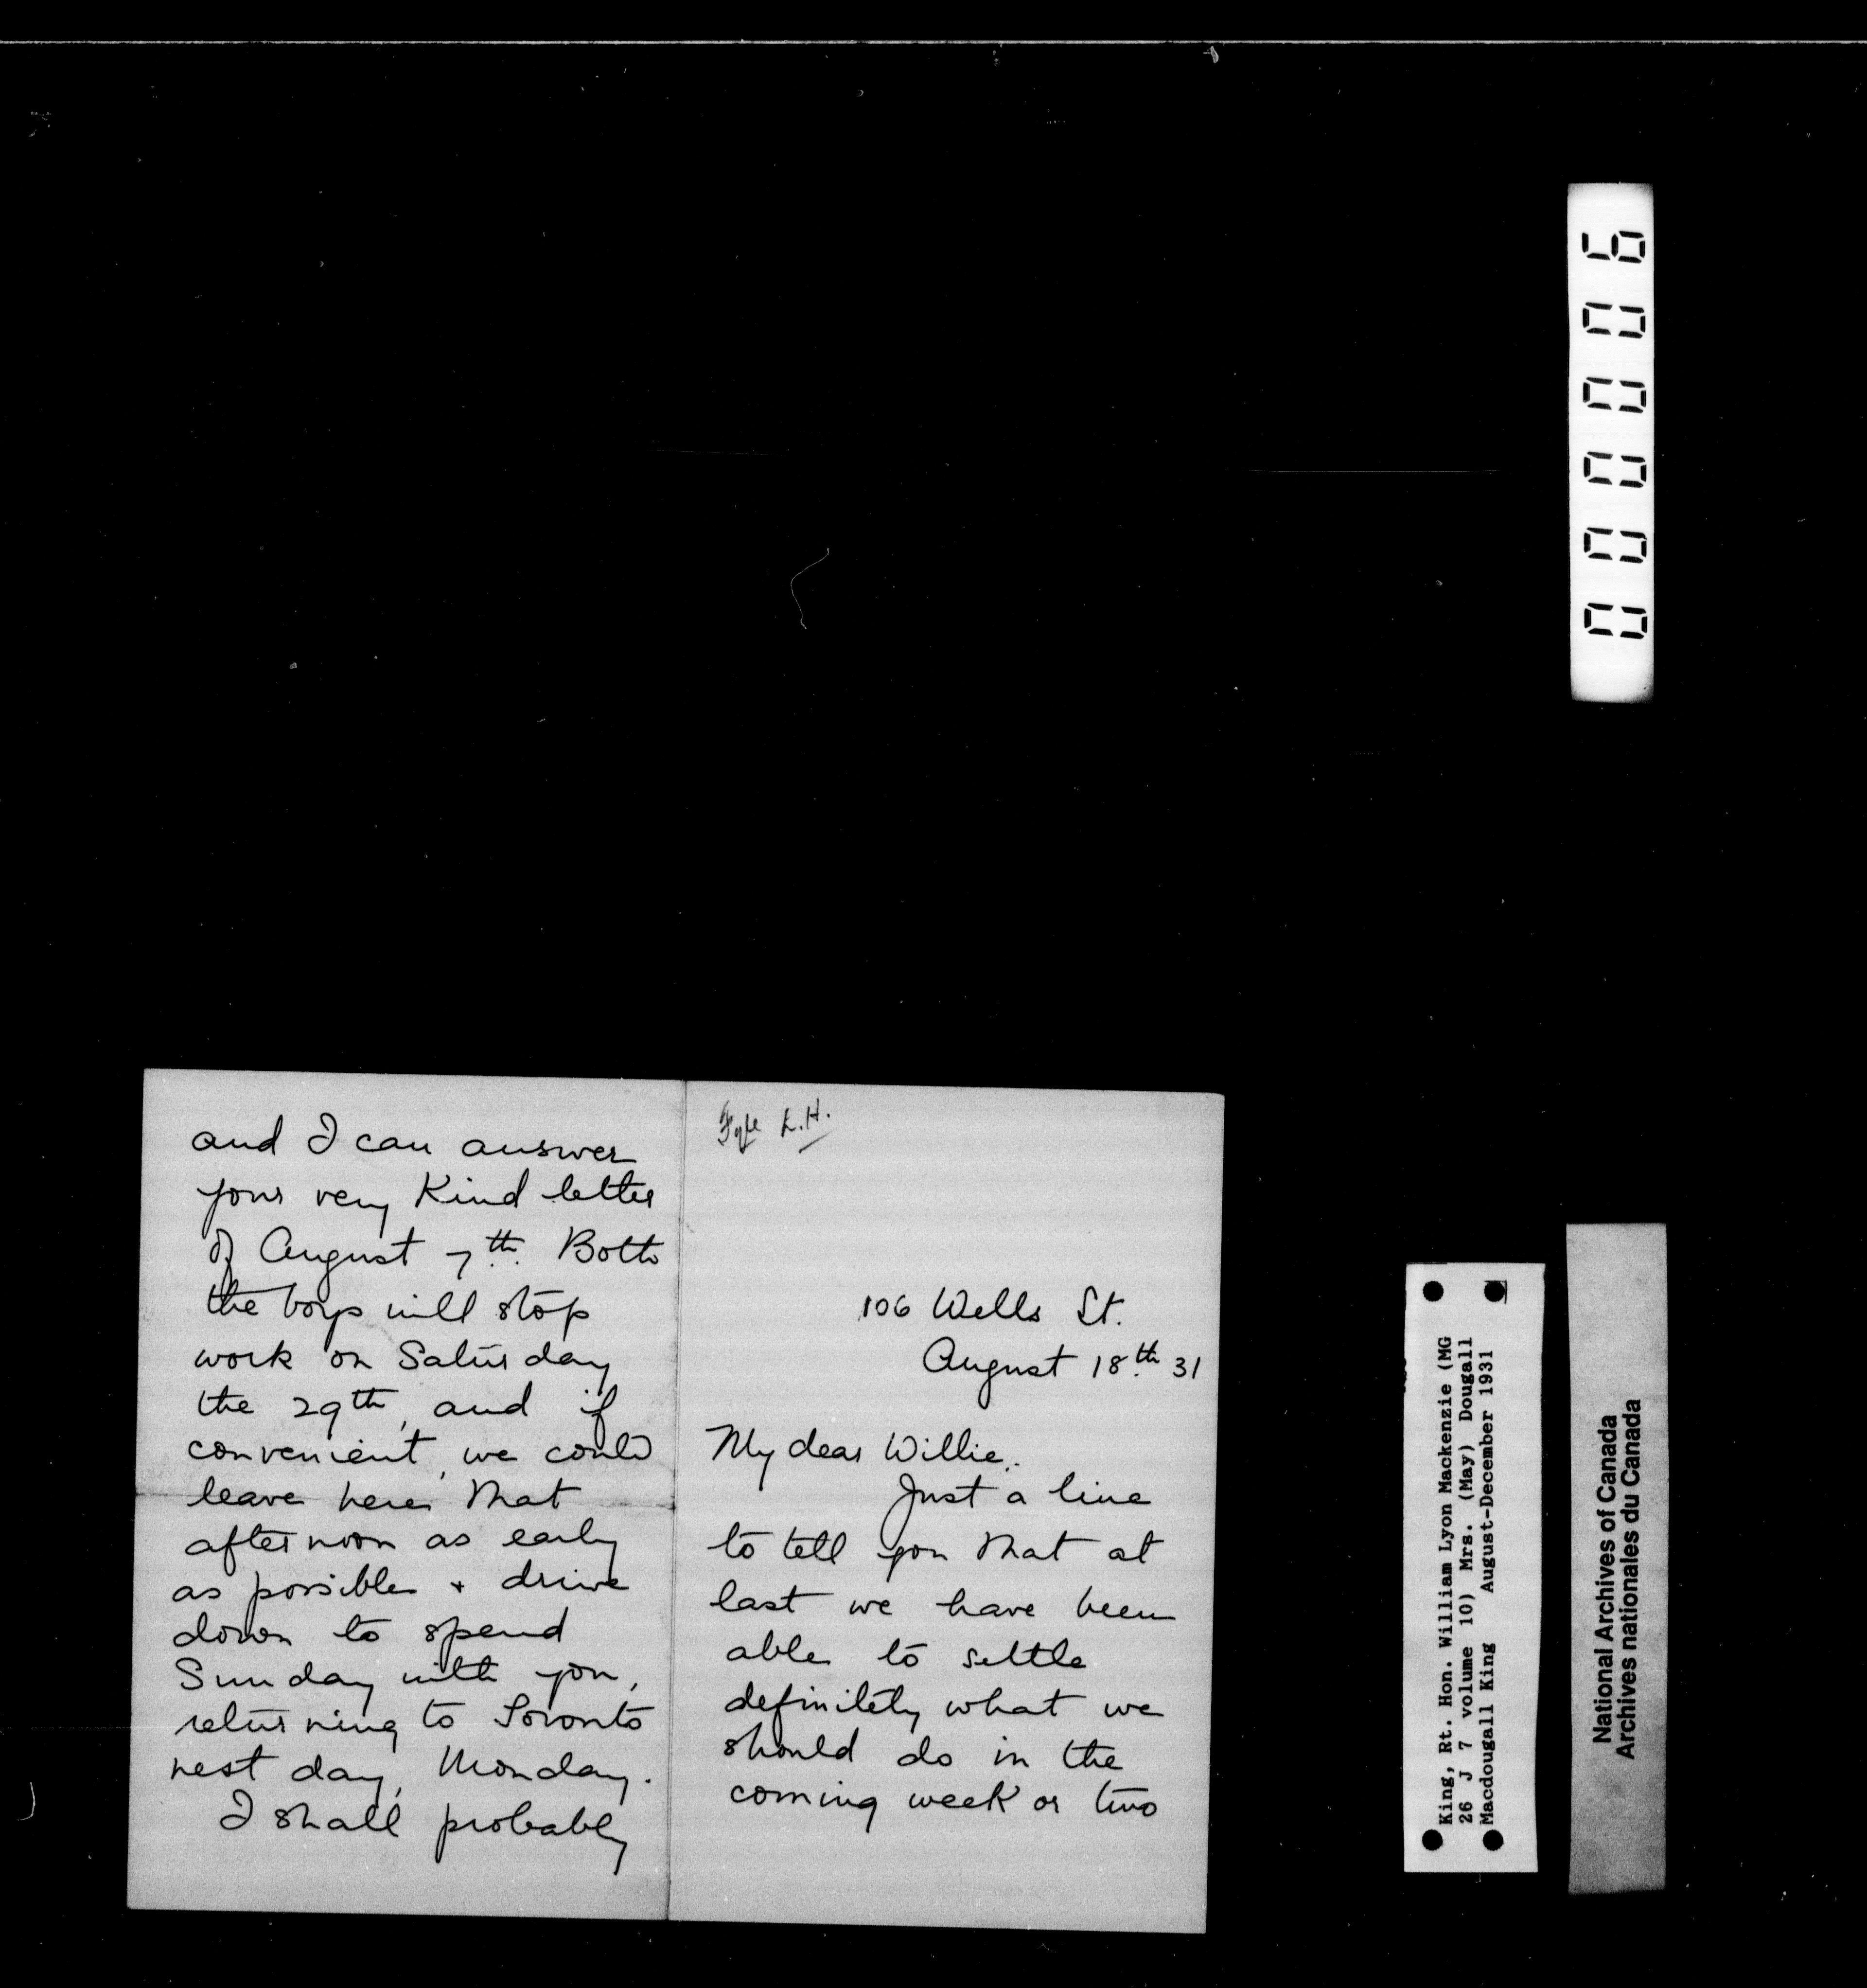 Fyle L.H.
106 Wells St.
August 18th 31
My dear Willie.
Just a line
to tell you that at
last we have been
able to settle
definitely what we
should do in the
coming week or two
and I can answer
your very Kind letter
of August 7th. Both
the boys will stop
work on Saturday
the 29th, and if
convenient, we could
leave here that
afternoon as early
as possible + drive
down to spend
Sunday with you,
returning to Toronto
next day, Monday.
I shall probably
000006
King, Rt. Hon. William Lyon Mackenzie (MG
26 J 7 volume 10) Mrs. (May) Dougall
Macdougall King August-December 1931
National Archives of Canada
Archives nationales du Canada